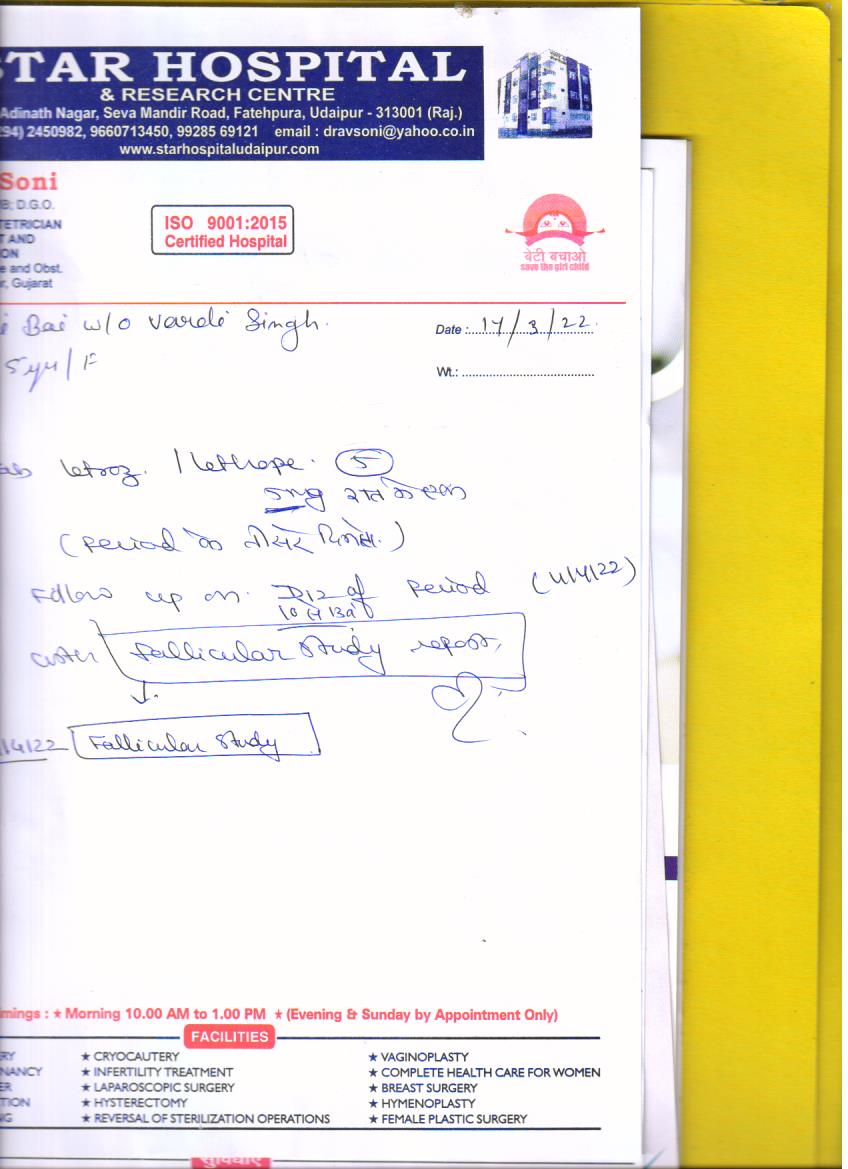 STAR HOSPITAL
& RESEARCH CENTRE
Adinath Nagar, Seva Mandir Road, Fatehpura, Udaipur - 313001 (Raj.)
294) 2450982, 9660713450, 99285 69121 email : dravsoni@yahoo.co.in
www.starhospitaludaipur.com
Soni
B; D.G.O.
TETRICIAN
T AND
ON
e and Obst.
r, Gujarat
ISO 9001:2015
Certified Hospital
बेटी बचाओ
save the girl child
i Bai w/o Vardi Singh.
Date : 17/3/22.
5 yr/F
Wt.:
letroz. / lethope. 5
5mg रात को एक
(Period के तीसरे दिन से.)
Follow up on. D12 of Period (4/4/22)
10 से 13
after Follicular Study report,
/4/22 Follicular Study
mings : ★ Morning 10.00 AM to 1.00 PM ★ (Evening & Sunday by Appointment Only)
FACILITIES
RY ★ CRYOCAUTERY ★ VAGINOPLASTY
NANCY ★ INFERTILITY TREATMENT ★ COMPLETE HEALTH CARE FOR WOMEN
ER ★ LAPAROSCOPIC SURGERY ★ BREAST SURGERY
TION ★ HYSTERECTOMY ★ HYMENOPLASTY
NG ★ REVERSAL OF STERILIZATION OPERATIONS ★ FEMALE PLASTIC SURGERY
सुविधाएं